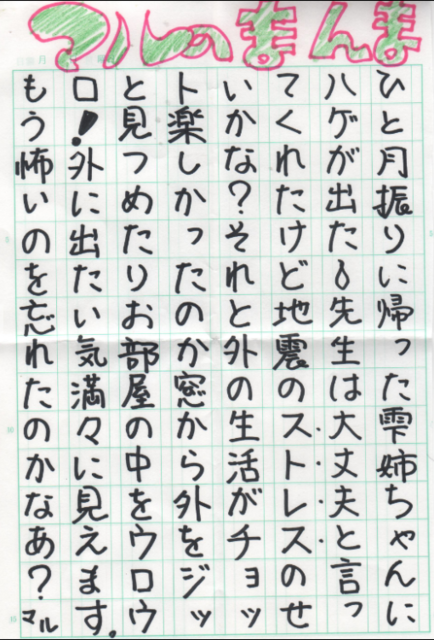 マルのまんま
ひと月振りに帰った雫姉ちゃんに
ハゲが出た!先生は大丈夫と言っ
てくれたけど地震のストレスのせ
いかな?それと外の生活がチョッ
ト楽しかったのか窓から外をジッ
と見つめたりお部屋の中をウロウ
ロ!外に出たい気満々に見えます。
もう怖いのを忘れたのかなあ?マル